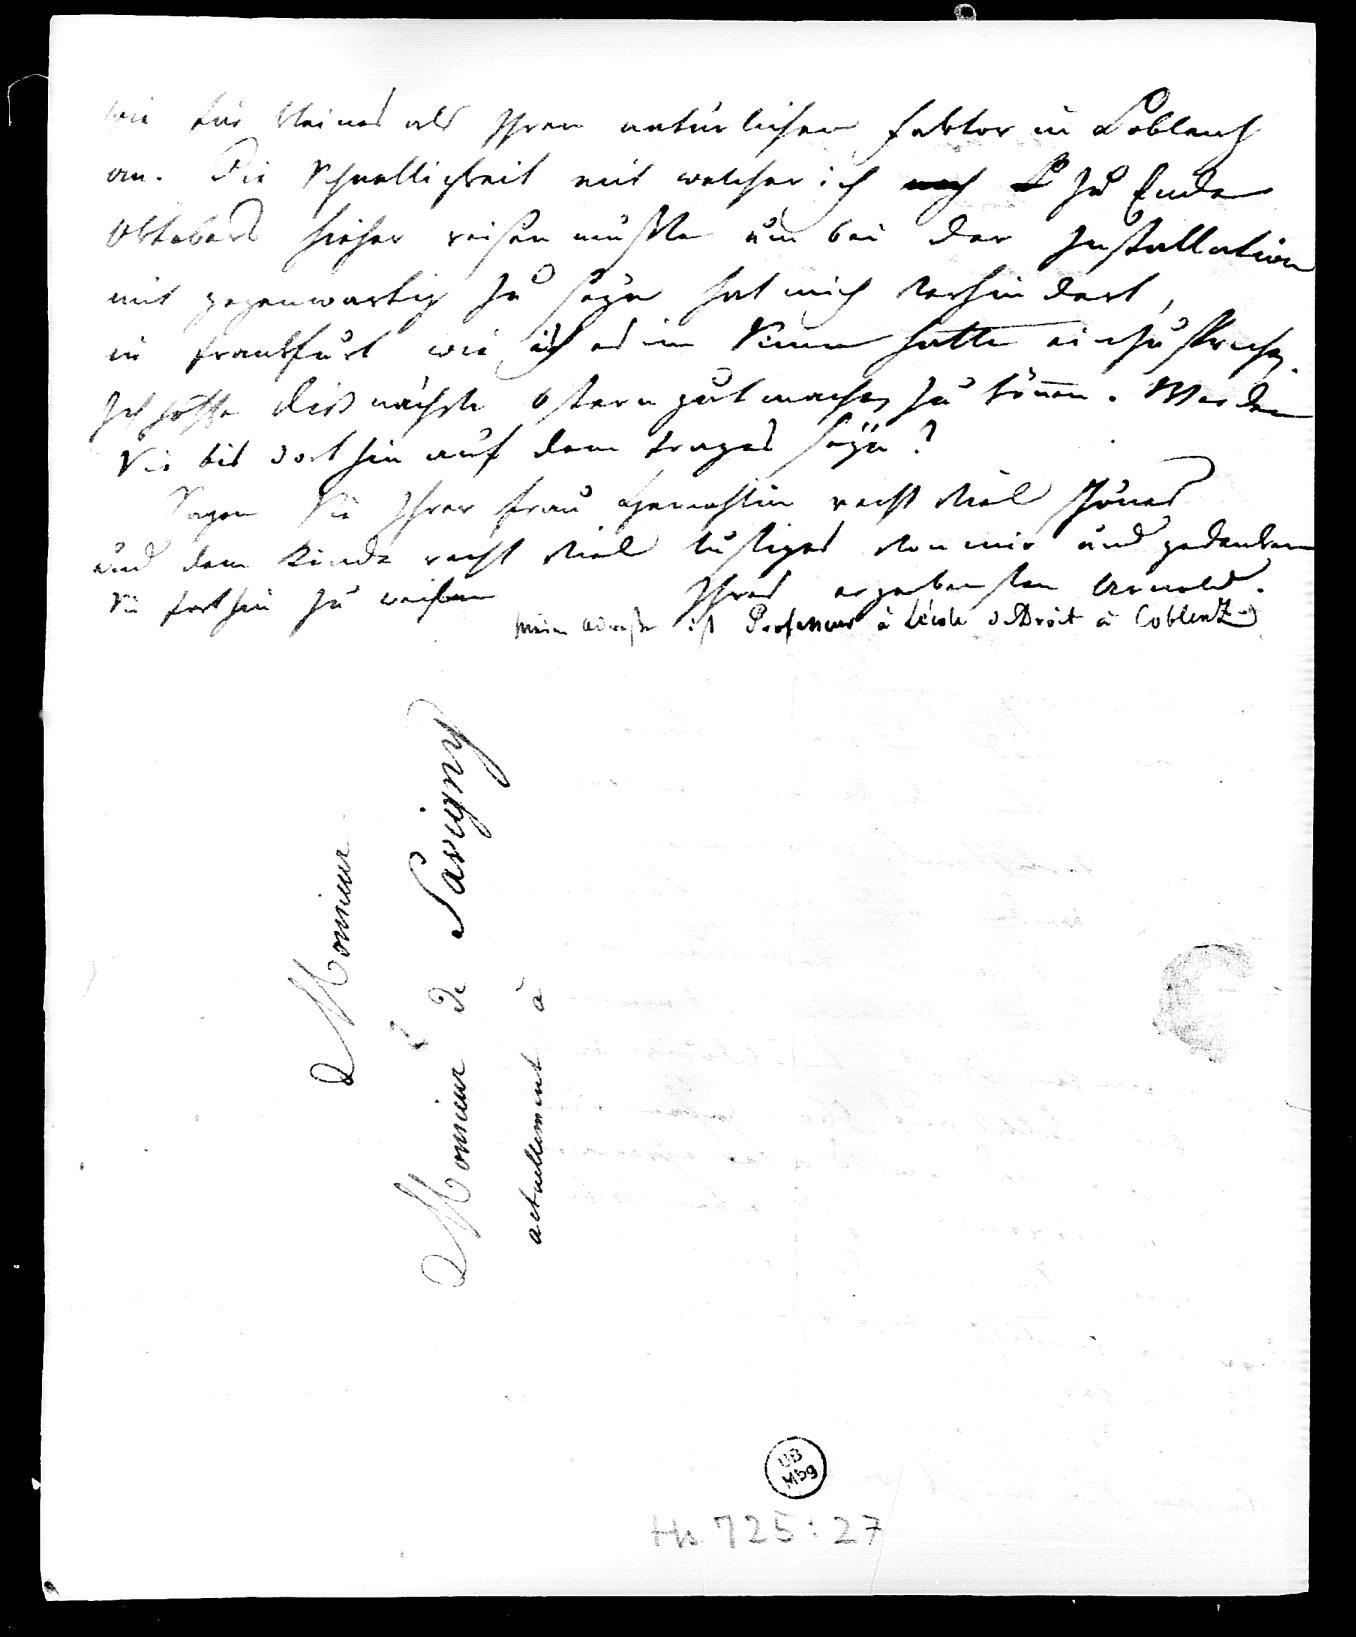 wie für kleines als Ihren natürlichen Faktor in Koblenz
an. Die Schnelligkeit mit welcher ich noch zu Ende
Oktobers hieher reisen mußte um bei der Installation
mit gegenwartig zu seyn hat mich verhindert,
in Frankfurt wie ich es im Sinne hatte einzusprechen.
Ich hoffe dies nächste Ostern gut machen zu können. Werden
Sie bis dorthin auf dem Trages seyn?
Sagen Sie Ihrer Frau Gemahlin recht viel schönes
und dem Kinde recht viel lustiges von mir und gedenken
Sie forthin zu weilen Ihres ergebensten Arnold.
Meine Adresse ist Professeur à L'école de Droit à Coblentz
Monsieur
Monsieur de Savigny
actuellement à
UB
Mbg
Hs 725:27